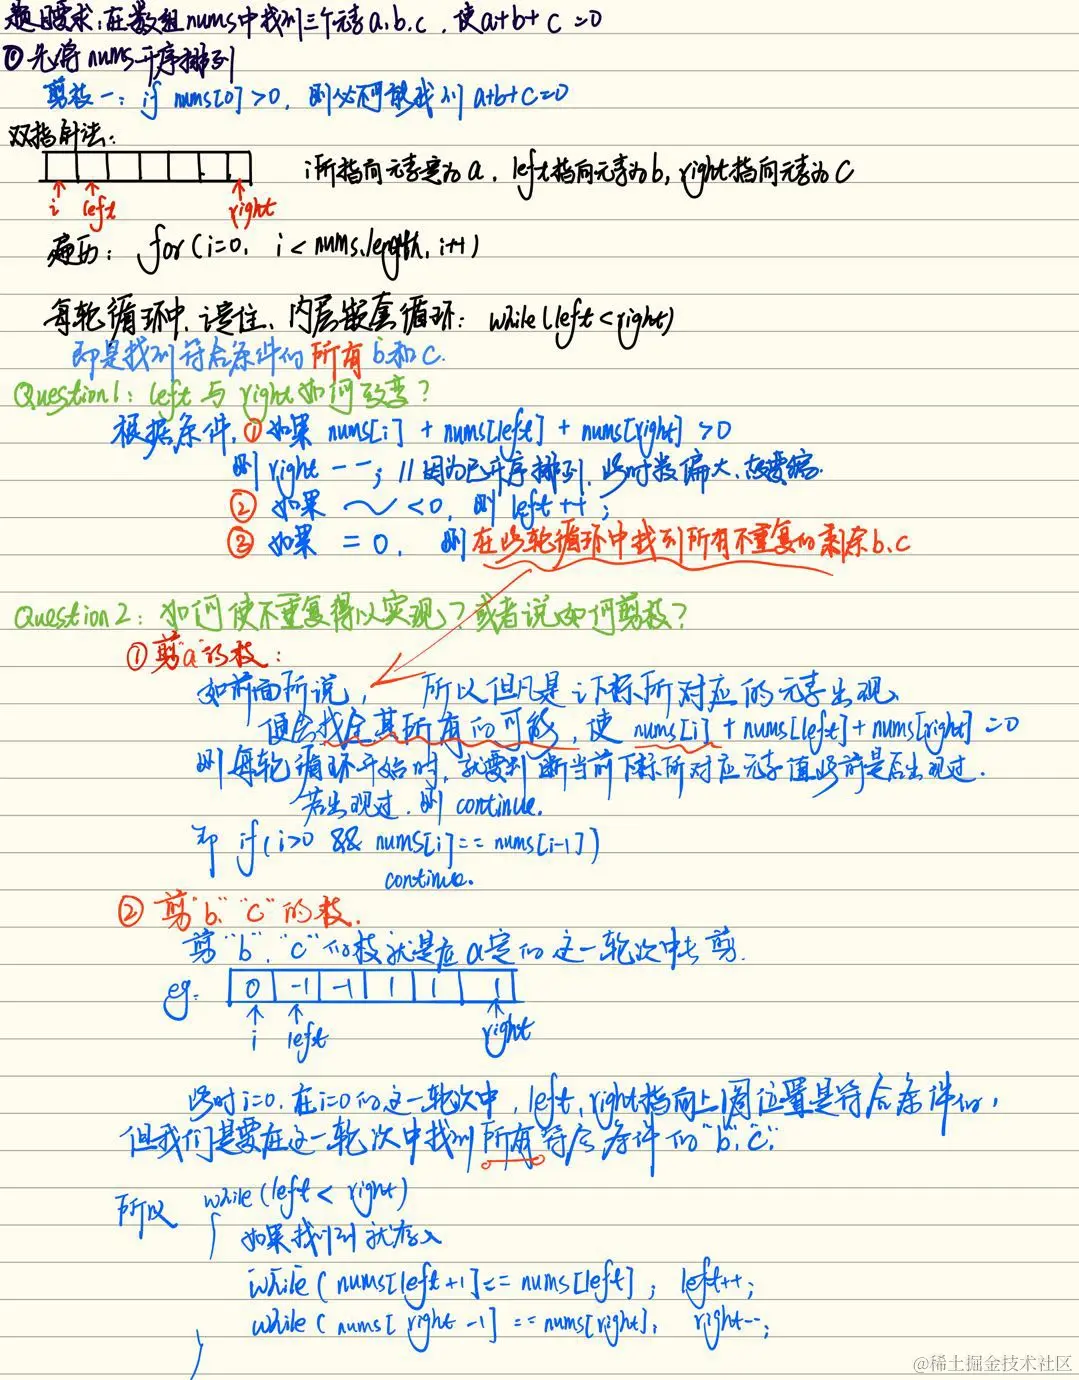 题目要求:在数组nums中找到三个元素a、b、c,使a+b+c=0
①先将nums升序排列
剪枝一:if nums[0]>0,则必不可能找到a+b+c=0
双指针法:
i left right
i所指向元素定为a,left指向元素为b,right指向元素为c
遍历:for(i=0, i<nums.length, i++)
每轮循环中,i定住、内层嵌套循环:while(left<right)
即是找到符合条件的所有b和c.
Question1:left与right如何改变?
根据条件,①如果 nums[i]+nums[left]+nums[right]>0
则right--;//因为已升序排列,此时数偏大、故要缩.
②如果 ~<0,则left++;
③如果 =0,则在此轮循环中找到所有不重复的剩余b、c
Question2:如何使不重复得以实现?或者说如何剪枝?
①剪"a"的枝:
如前面所说,所以但凡是i下标所对应的元素出现、
便会找全其所有的可能,使 nums[i]+nums[left]+nums[right]=0
则每轮循环开始时,就要判断当前下标所对应元素值此前是否出现过.
若出现过.则continue.
即 if(i>0 && nums[i]==nums[i-1])
continue.
②剪"b"、"c"的枝.
剪"b"、"c"的枝就是在a定的这一轮次中去剪.
eg. 0 -1 -1 1 1 1
i left right
此时i=0.在i=0的这一轮次中,left、right指向上图位置是符合条件的,
但我们是要在这一轮次中找到所有符合条件的"b"、"c".
所以 while(left<right)
{ 如果找到就存入
while(nums[left+1]==nums[left]; left++;
while(nums[right-1]==nums[right]; right--;
}
@稀土掘金技术社区